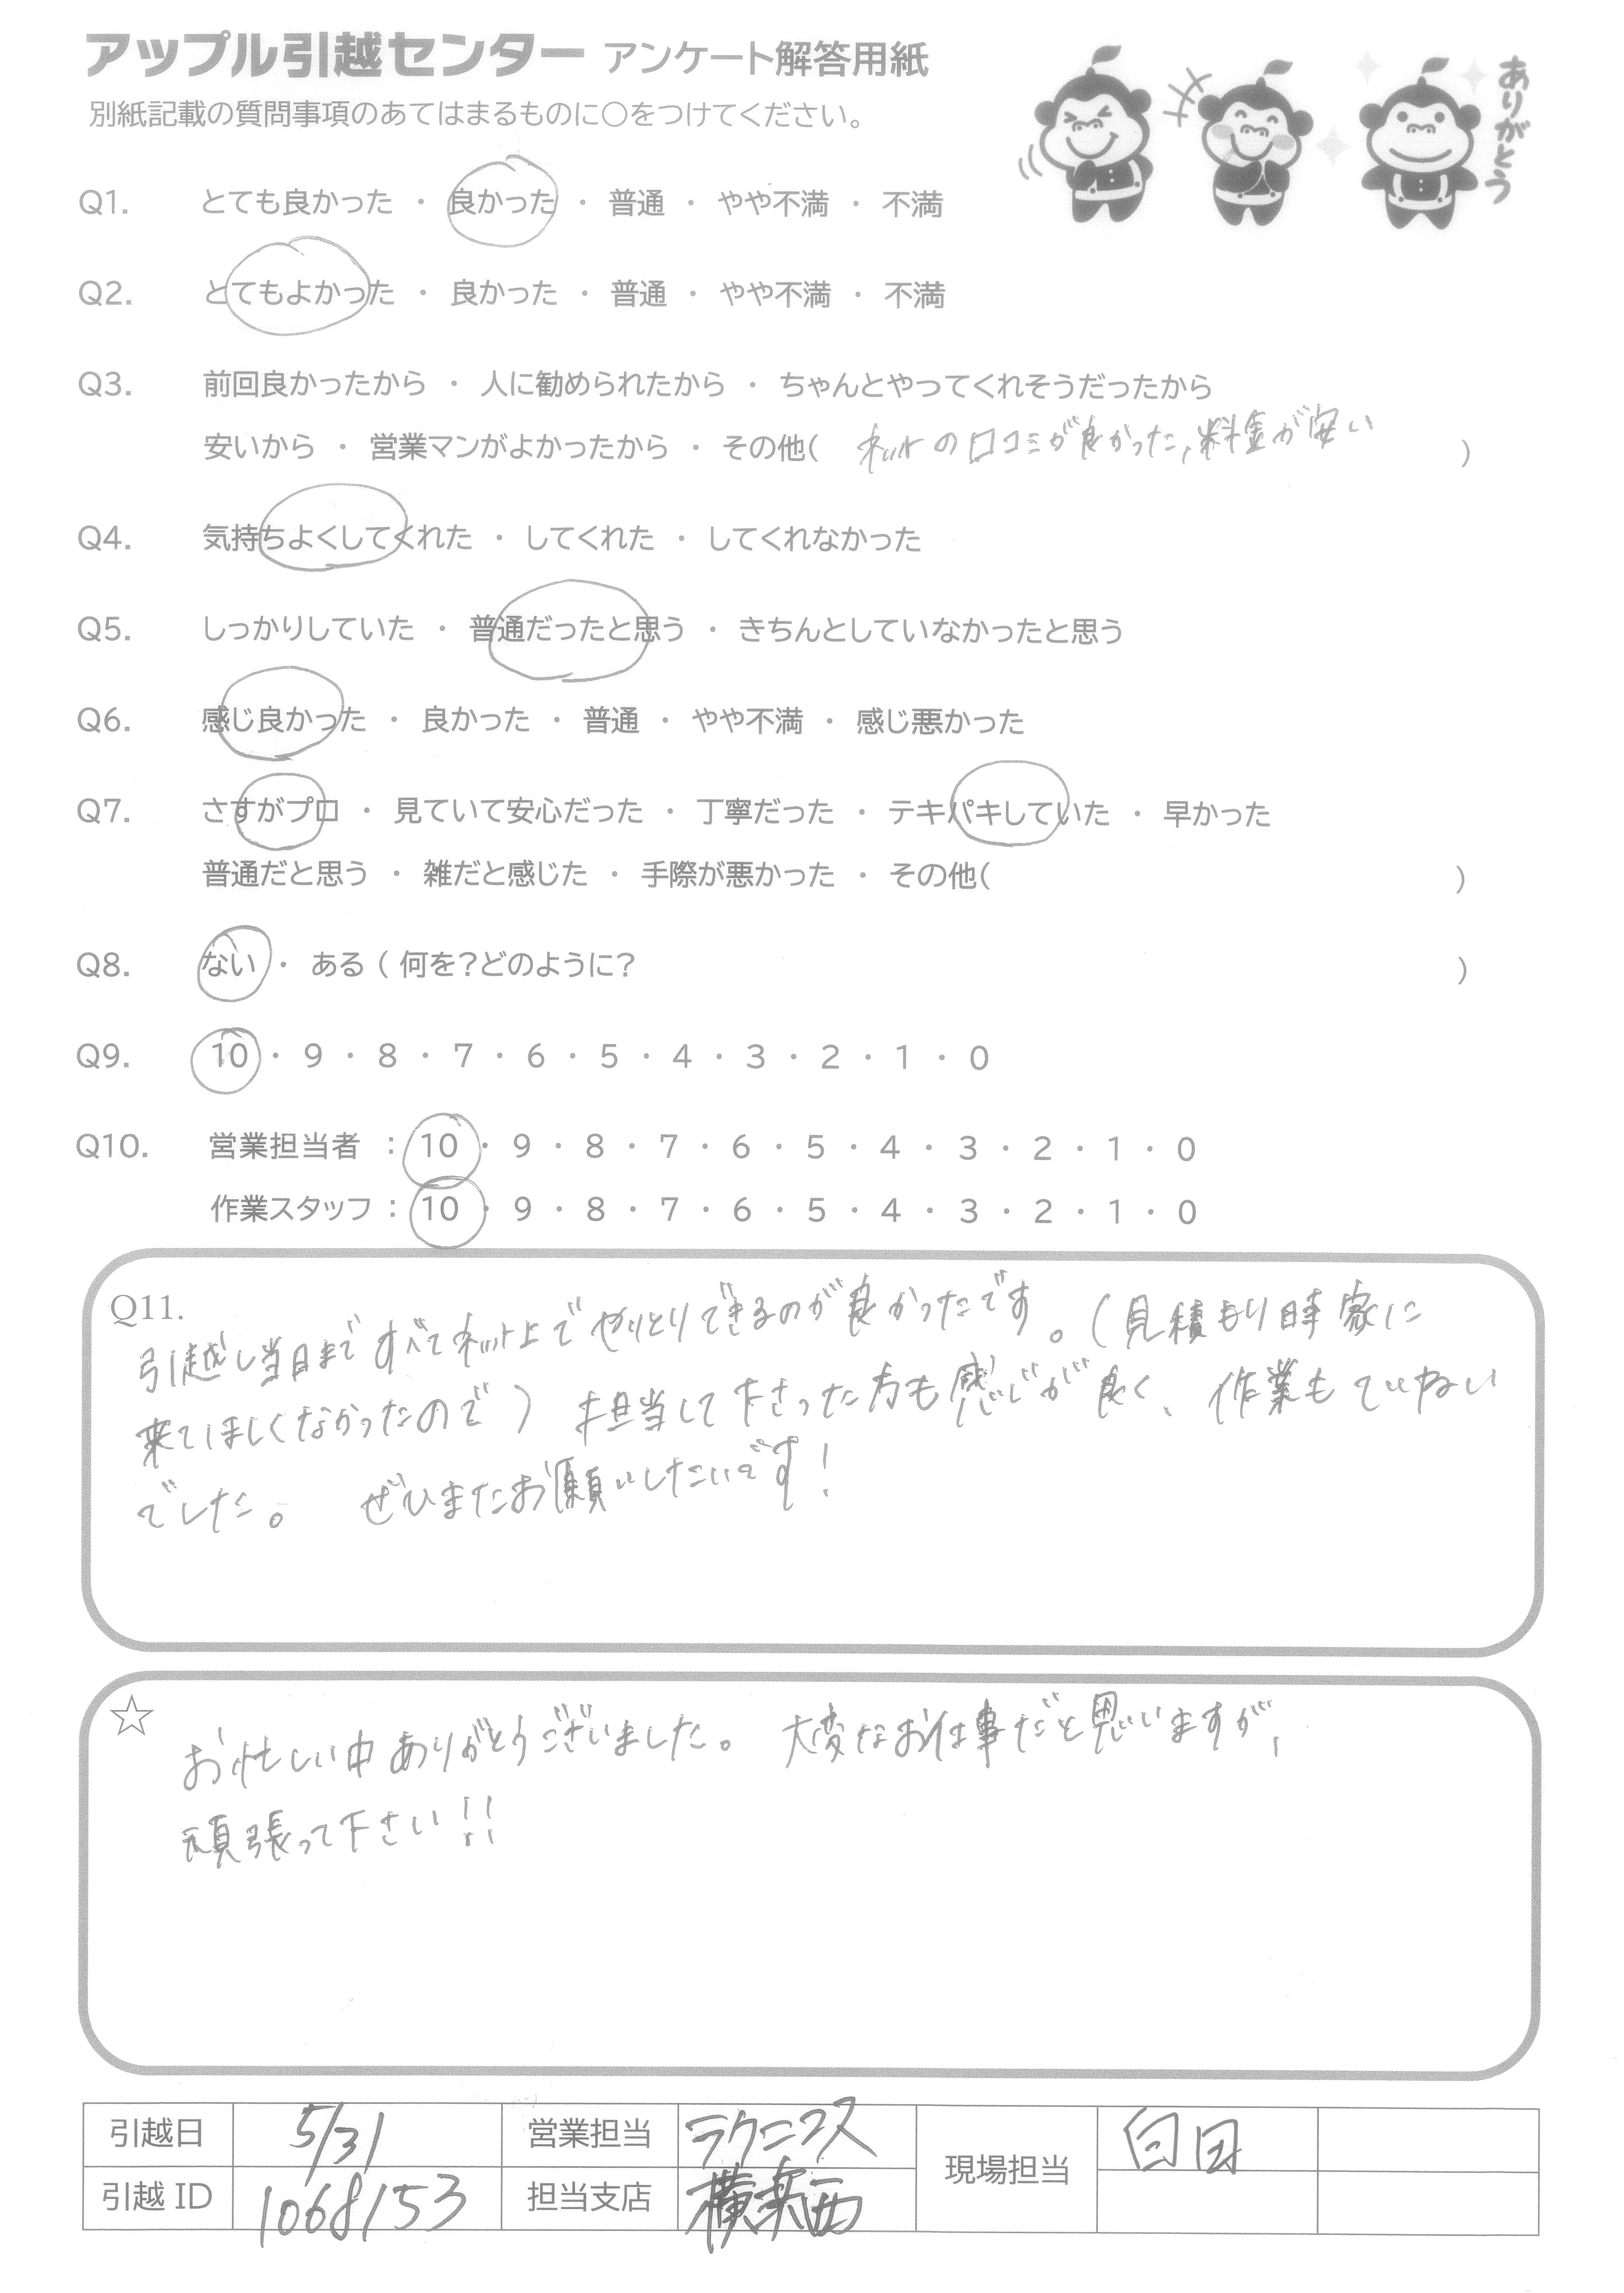 アップル引越センター アンケート解答用紙
別紙記載の質問事項のあてはまるものに○をつけてください。
ありがとう
Q1. とても良かった ・ 良かった ・ 普通 ・ やや不満 ・ 不満
Q2. とてもよかった ・ 良かった ・ 普通 ・ やや不満 ・ 不満
Q3. 前回良かったから ・ 人に勧められたから ・ ちゃんとやってくれそうだったから
安いから ・ 営業マンがよかったから ・ その他( ネットの口コミが良かった、料金が安い )
Q4. 気持ちよくしてくれた ・ してくれた ・ してくれなかった
Q5. しっかりしていた ・ 普通だったと思う ・ きちんとしていなかったと思う
Q6. 感じ良かった ・ 良かった ・ 普通 ・ やや不満 ・ 感じ悪かった
Q7. さすがプロ ・ 見ていて安心だった ・ 丁寧だった ・ テキパキしていた ・ 早かった
普通だと思う ・ 雑だと感じた ・ 手際が悪かった ・ その他( )
Q8. ない ・ ある ( 何を?どのように? )
Q9. 10 ・ 9 ・ 8 ・ 7 ・ 6 ・ 5 ・ 4 ・ 3 ・ 2 ・ 1 ・ 0
Q10. 営業担当者 : 10 ・ 9 ・ 8 ・ 7 ・ 6 ・ 5 ・ 4 ・ 3 ・ 2 ・ 1 ・ 0
作業スタッフ : 10 ・ 9 ・ 8 ・ 7 ・ 6 ・ 5 ・ 4 ・ 3 ・ 2 ・ 1 ・ 0
Q11.
引越し当日まですべてネット上でやりとりできるのが良かったです。(見積もり時家に
来てほしくなかったので) 担当して下さった方も感じが良く、作業もていねい
でした。 ぜひまたお願いしたいです!
☆
お忙しい中ありがとうございました。 大変なお仕事だと思いますが、
頑張って下さい!!
引越日 5/31 営業担当 ラクニコス 現場担当 白田
引越 ID 1068153 担当支店 横浜西